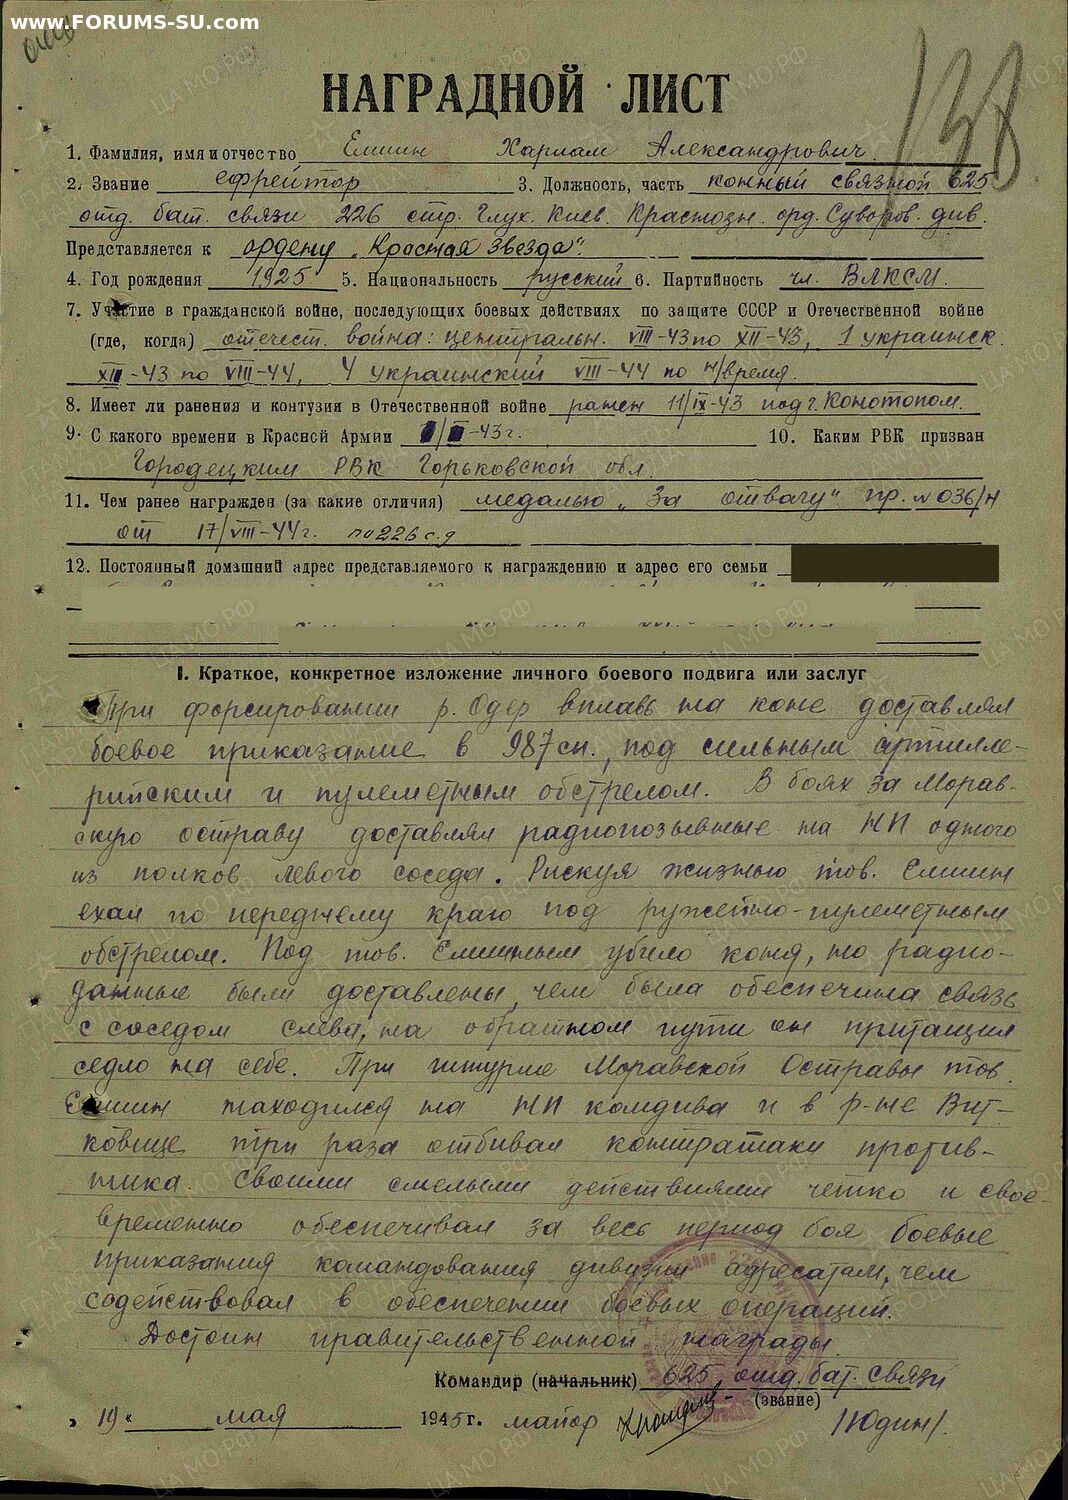 www.FORUMS-SU.com
138
НАГРАДНОЙ ЛИСТ
1. Фамилия, имя и отчество Емшин Харлам Александрович
2. Звание ефрейтор 3. Должность, часть конный связной 625
отд. бат. связи 226 стр. Глух. Киев. Краснозн. орд. Суворов. див.
Представляется к ордену „Красная Звезда".
4. Год рождения 1925 5. Национальность русский 6. Партийность чл. ВЛКСМ.
7. Участие в гражданской войне, последующих боевых действиях по защите СССР и Отечественной войне
(где, когда) отечест. война: центральн. VIII-43 по XII-43, 1 украинск.
XII-43 по VIII-44, 4 украинский VIII-44 по н/время.
8. Имеет ли ранения и контузии в Отечественной войне ранен 11/IX-43 под г. Конотопом.
9. С какого времени в Красной Армии -43г. 10. Каким РВК призван
Городецким РВК Горьковской обл.
11. Чем ранее награжден (за какие отличия) медалью „За отвагу" пр. № 036/н
от 17/VIII-44г. по 226 с.д
12. Постоянный домашний адрес представляемого к награждению и адрес его семьи
I. Краткое, конкретное изложение личного боевого подвига или заслуг
При форсировании р. Одер вплавь на коне доставлял
боевое приказание в 987 сп., под сильным артилле-
рийским и пулеметным обстрелом. В боях за Морав-
скую остраву доставлял радиопозывные на НП одного
из полков левого соседа. Рискуя жизнью тов. Емшин
ехал по переднему краю под ружейно-пулеметным
обстрелом. Под тов. Емшиным убило коня, но радио-
данные были доставлены, чем была обеспечина связь
с соседом слева, на обратном пути он притащил
седло на себе. При штурме Моравской Остравы тов.
Емшин находился на НП комдива и в р-не Вит-
ковице три раза отбивал контратаки против-
ника. Своими смелыми действиями четко и свое-
временно обеспечивал за весь период боя боевые
приказания командования дивизии адресатам, чем
содействовал в обеспечении боевых операций.
Достоин правительственной награды.
Командир (начальник) 625 отд. бат. связи
(звание)
„ 19 " мая 1945г. майор /Юдин/.